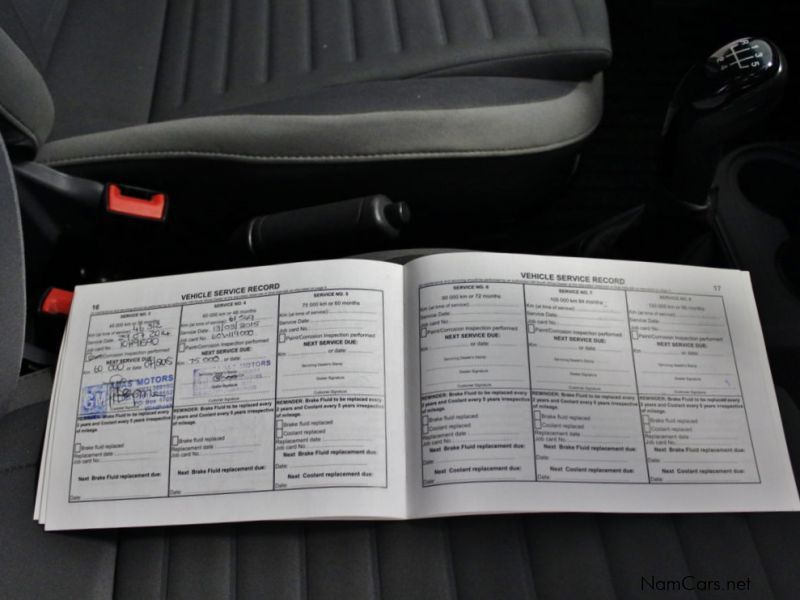 R 1 3 5
2 4
16
VEHICLE SERVICE RECORD
SERVICE NO. 3
45 000 km or
Km (at time of service)
Service Date
Job card No.
Paint/Corrosion Inspection performed
NEXT SERVICE DUE:
60 000 Km
or date
MOTORS
Customer Signature
REMINDER: Brake Fluid to be replaced every
2 years and Coolant every 5 years irrespective
of mileage.
Brake fluid replaced
Replacement date
Job card No.
Next Brake Fluid replacement due:
Date:
SERVICE NO. 4
60 000 km or 48 months
Km (at time of service) 61 569
Service Date: 13/03/2015
Job card No.
Paint/Corrosion Inspection performed
NEXT SERVICE DUE:
Km 75 000 or date
Customer Signature
REMINDER: Brake Fluid to be replaced every
2 years and Coolant every 5 years irrespective
of mileage.
Brake fluid replaced
Replacement date
Job card No.
Next Brake Fluid replacement due:
Date:
SERVICE NO. 5
75 000 km or 60 months
Km (at time of service)
Service Date
Job card No.
Paint/Corrosion Inspection performed
NEXT SERVICE DUE:
Km or date
Servicing Dealer's Stamp
Dealer Signature
Customer Signature
REMINDER: Brake Fluid to be replaced every
2 years and Coolant every 5 years irrespective
of mileage.
Brake fluid replaced
Coolant replaced
Replacement date
Job card No.
Next Brake Fluid replacement due:
Next Coolant replacement due:
Date:
VEHICLE SERVICE RECORD
17
SERVICE NO. 6
90 000 km or 72 months
Km (at time of service)
Service Date
Job card No.
Paint/Corrosion Inspection performed
NEXT SERVICE DUE:
Km or date
Servicing Dealer's Stamp
Dealer Signature
Customer Signature
REMINDER: Brake Fluid to be replaced every
2 years and Coolant every 5 years irrespective
of mileage.
Brake fluid replaced
Coolant replaced
Replacement date
Job card No.
Next Brake Fluid replacement due:
Next Coolant replacement due:
Date:
SERVICE NO. 7
105 000 km 84 months
Km (at time of service)
Service Date
Job card No.
Paint/Corrosion Inspection performed
NEXT SERVICE DUE:
Km or date
Servicing Dealer's Stamp
Dealer Signature
Customer Signature
REMINDER: Brake Fluid to be replaced every
2 years and Coolant every 5 years irrespective
of mileage.
Brake fluid replaced
Coolant replaced
Replacement date
Job card No.
Next Brake Fluid replacement due:
Next Coolant replacement due:
Date:
SERVICE NO. 8
Km (at time of service)
Service Date
Job card No.
Paint/Corrosion Inspection performed
NEXT SERVICE DUE:
Km or date
Servicing Dealer's Stamp
Dealer Signature
Customer Signature
REMINDER: Brake Fluid to be replaced every
2 years and Coolant every 5 years irrespective
of mileage.
Brake fluid replaced
Coolant replaced
Replacement date
Job card No.
Next Brake Fluid replacement due:
Next Coolant replacement due:
Date:
NamCars.net